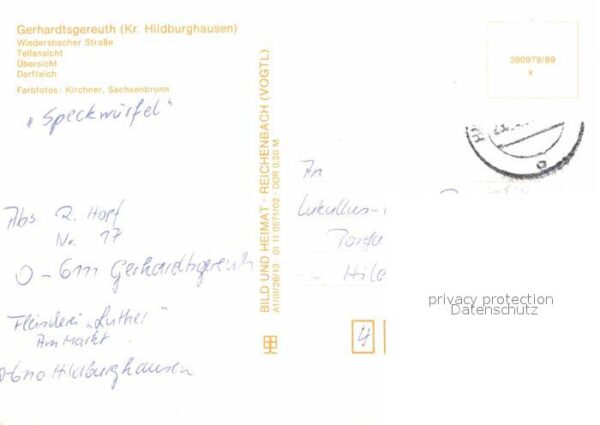 Gerhardtsgereuth (Kr. Hildburghausen)
Wiedersbacher Straße
Teilansicht
Übersicht
Dorfteich
Farbfotos: Kirchner, Sachsenbrunn
„Speckwürfel“
Abs. R. Hopf
Nr. 17
O-6111 Gerhardtsgereuth
Fleischerei „Luther“
Am Markt
O-6110 Hildburghausen
BILD UND HEIMAT · REICHENBACH (VOGTL)
A1/III/26/13 · 01 11 0571/02 · DDR 0,20 M
380979/89
x
An
Lukullus-
Hil
privacy protection
Datenschutz
4